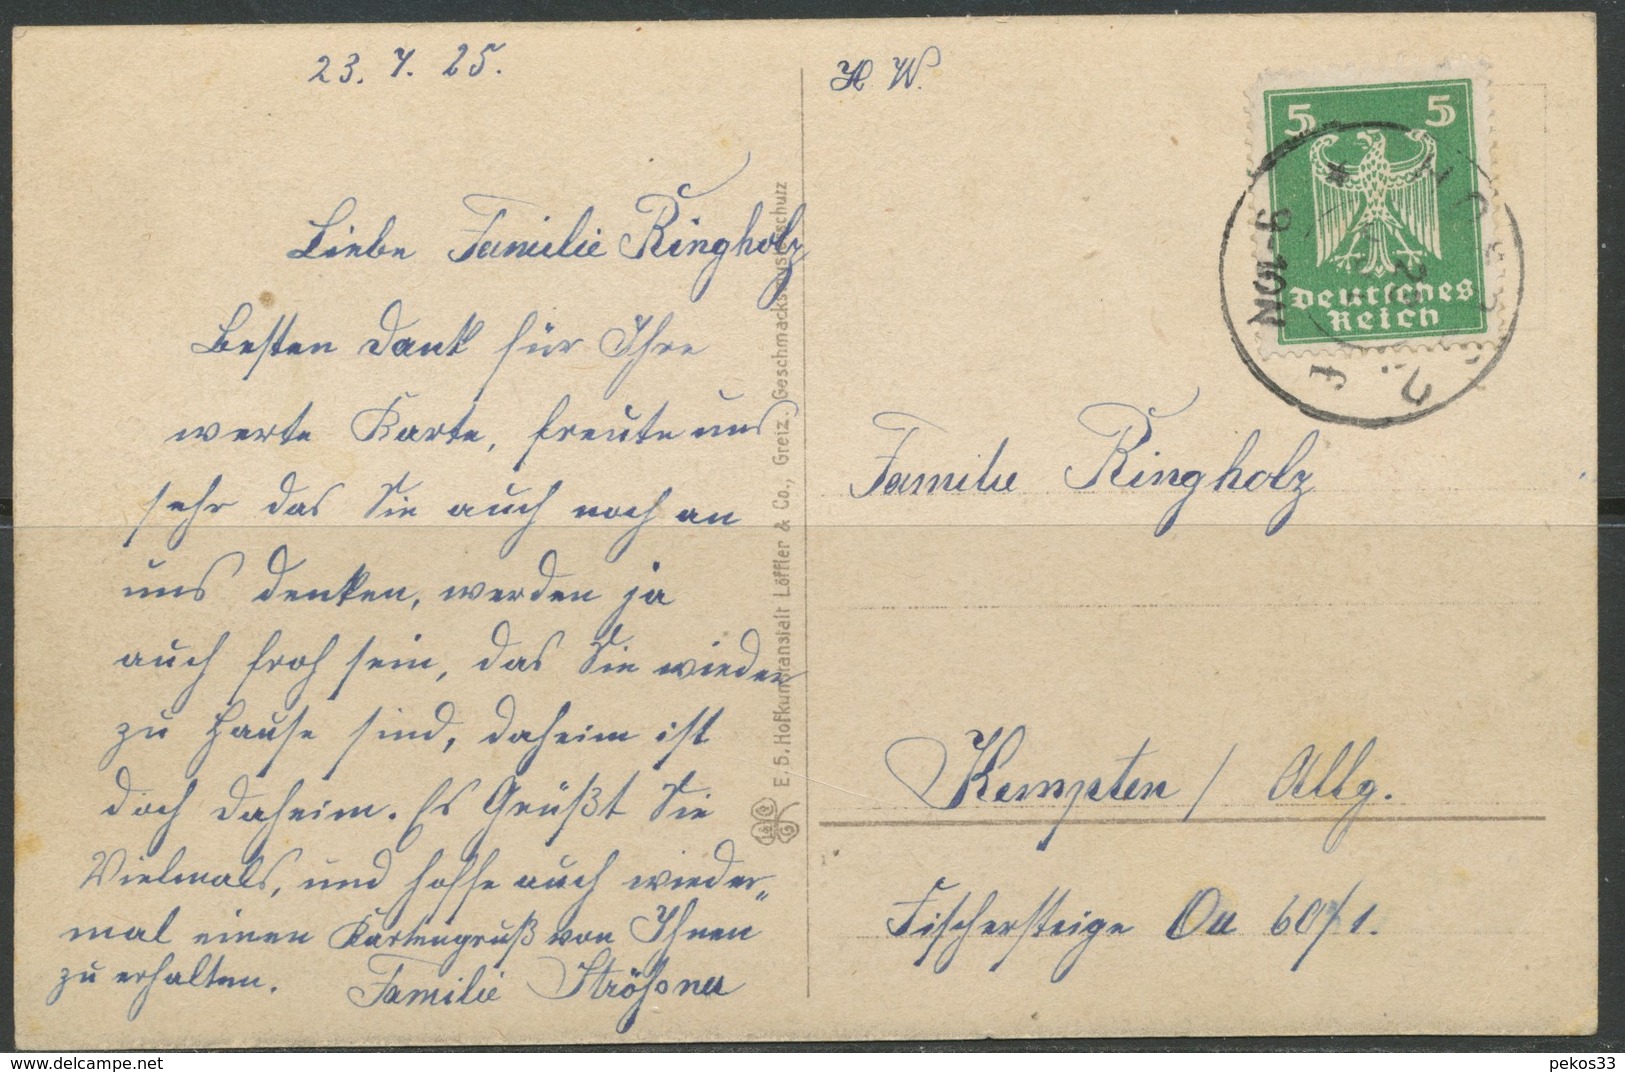 23. 7. 25.
Liebe Familie Ringholz
Besten Dank für Ihre
werte Karte, freute uns
sehr das Sie auch noch an
uns denken, werden ja
auch froh sein, das Sie wieder
zu Hause sind, daheim ist
doch daheim. Es Grüßt Sie
Vielmals, und hoffe auch wieder„
mal einen Kartengruß von Ihnen
zu erhalten. Familie
E. S. Hofkunstanstalt Löffler & Co., Greiz. Geschmacksmusterschutz
L & C G
H W.
5 5
Deutsches
Reich
9-10N
Familie Ringholz
Kempten / Allg.
Fischersteige 60/1.
delcampe.net
pekos33